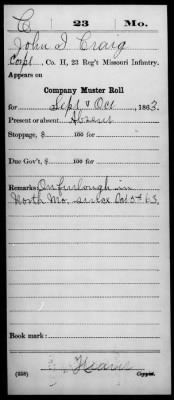 C 23 Mo.
John I. Craig
Corpl, Co. H, 23 Reg't Missouri Infantry.
Appears on
Company Muster Roll
for Sept & Oct, 1863.
Present or absent Absent
Stoppage, $ 100 for
Due Gov't, $ 100 for
Remarks: On furlough in
North Mo. since Oct 5th 63.
Book mark:
(358) Copyist.